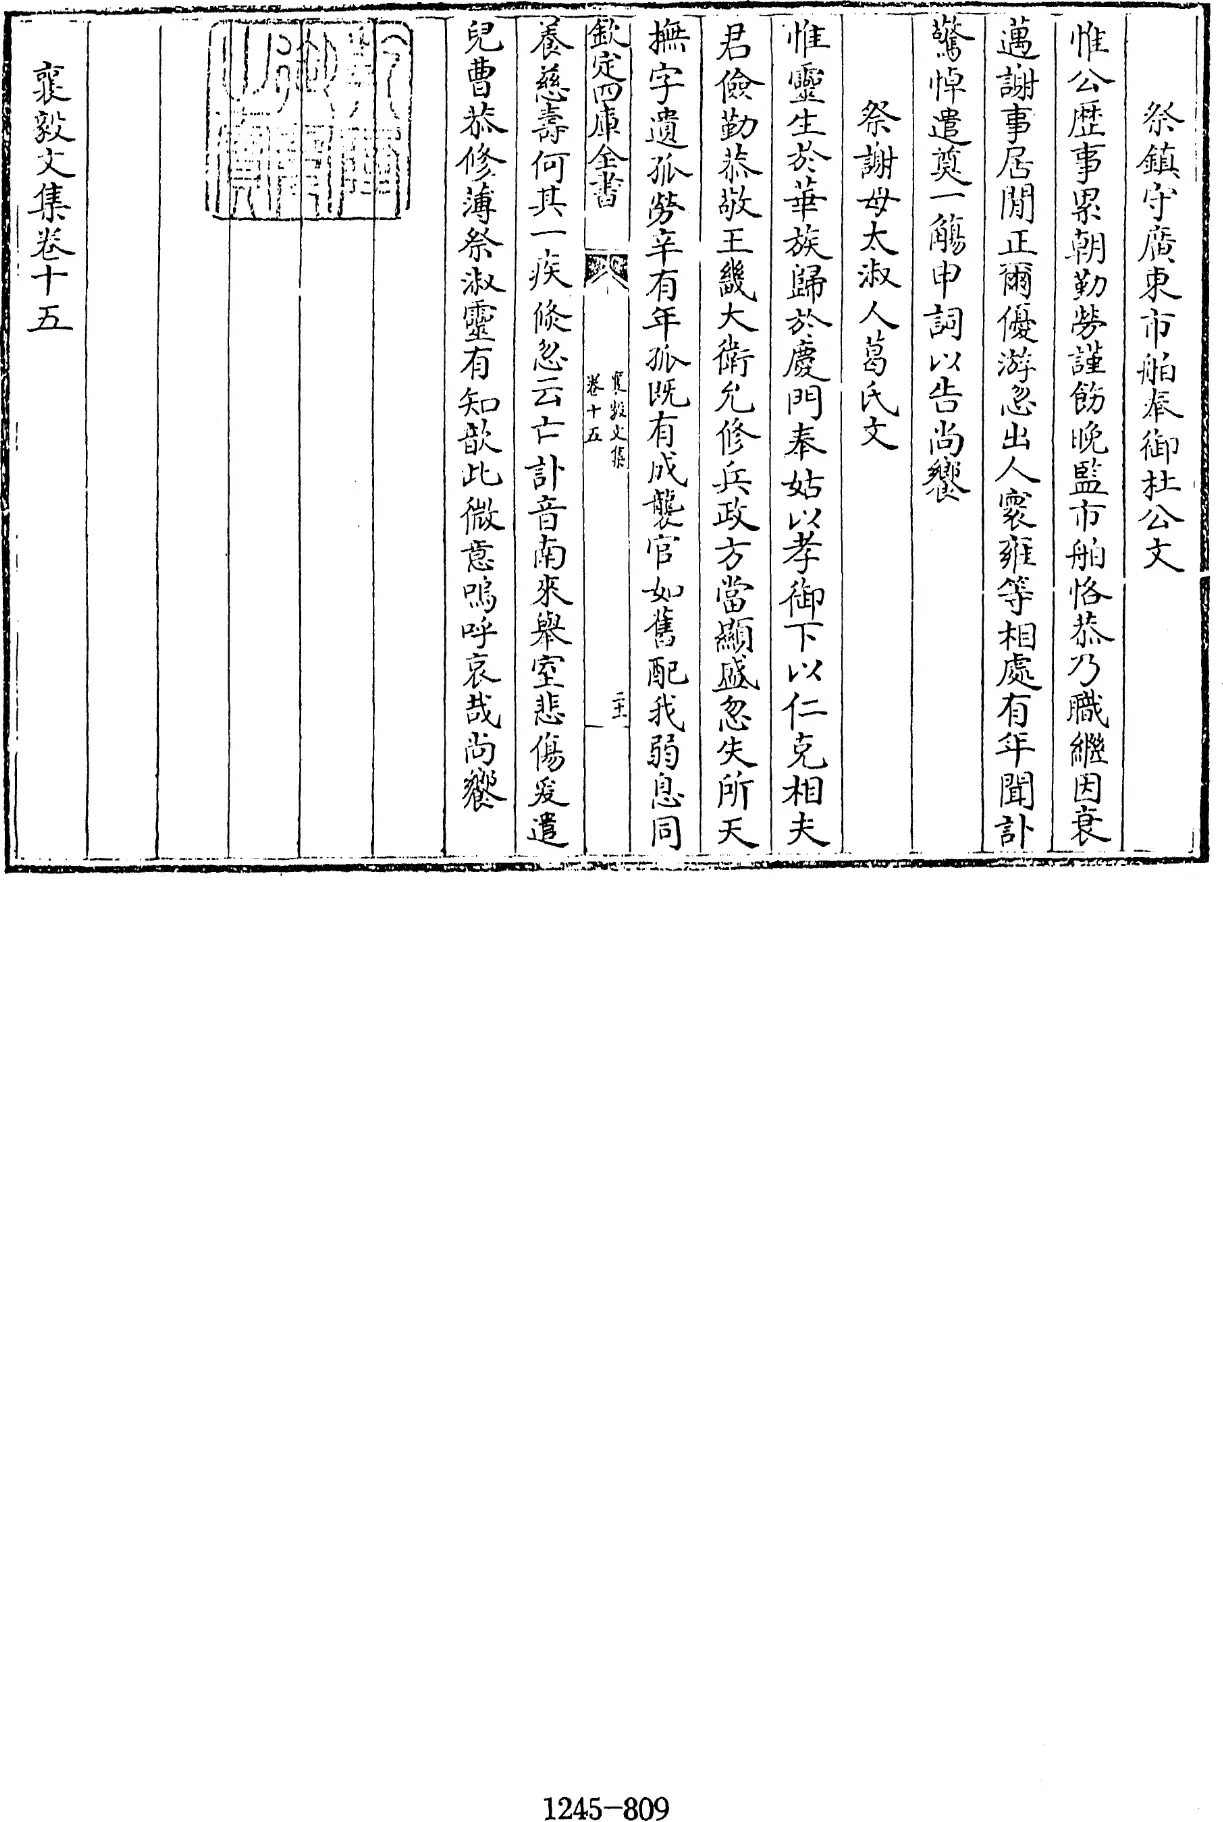 祭鎮守廣東市舶奉御杜公文
惟公歷事累朝勤勞謹飭晚監市舶恪恭乃職繼因衰
邁謝事居閒正爾優游忽出人寰雍等相處有年聞訃
驚悼遣奠一觴申詞以告尚饗
祭謝母太淑人葛氏文
惟靈生於華族歸於慶門奉姑以孝御下以仁克相夫
君儉勤恭敬王畿大衛允修兵政方當顯盛忽失所天
撫字遺孤勞辛有年孤既有成襲官如舊配我弱息同
欽定四庫全書
襄毅文集
卷十五
養慈壽何其一疾倐忽云亡訃音南來舉室悲傷爰遣
兒曹恭修薄祭淑靈有知歆此微意嗚呼哀哉尚饗
襄毅文集卷十五
1245-809